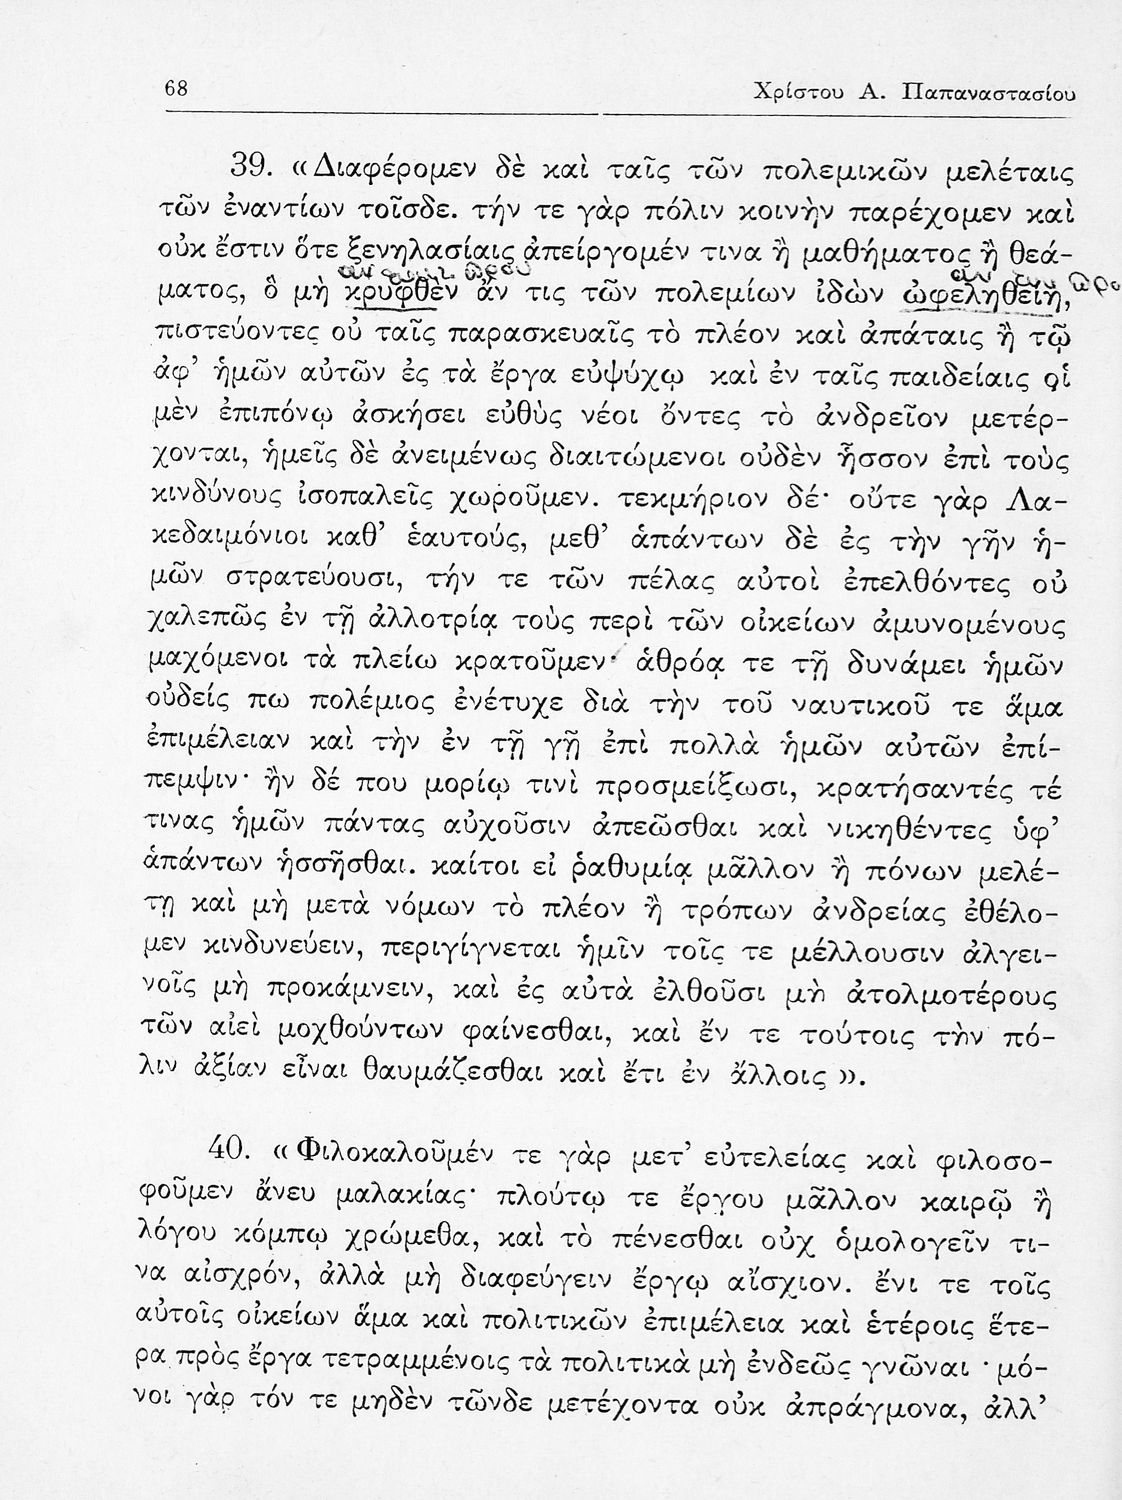 68
Χρίστου Α. Παπαναστασίου
39. «Διαφέρομεν δὲ καὶ ταῖς τῶν πολεμικῶν μελέταις
τῶν ἐναντίων τοῖσδε. τήν τε γὰρ πόλιν κοινὴν παρέχομεν καὶ
οὐκ ἔστιν ὅτε ξενηλασίαις ἀπείργομέν τινα ἢ μαθήματος ἢ θεά-
ματος, ὃ μὴ κρυφθὲν ἄν τις τῶν πολεμίων ἰδὼν ὠφεληθείη,
πιστεύοντες οὐ ταῖς παρασκευαῖς τὸ πλέον καὶ ἀπάταις ἢ τῷ
ἀφ’ ἡμῶν αὐτῶν ἐς τὰ ἔργα εὐψύχῳ καὶ ἐν ταῖς παιδείαις οἱ
μὲν ἐπιπόνῳ ἀσκήσει εὐθὺς νέοι ὄντες τὸ ἀνδρεῖον μετέρ-
χονται, ἡμεῖς δὲ ἀνειμένως διαιτώμενοι οὐδὲν ἧσσον ἐπὶ τοὺς
κινδύνους ἰσοπαλεῖς χωροῦμεν. τεκμήριον δέ· οὔτε γὰρ Λα-
κεδαιμόνιοι καθ’ ἑαυτούς, μεθ’ ἁπάντων δὲ ἐς τὴν γῆν ἡ-
μῶν στρατεύουσι, τήν τε τῶν πέλας αὐτοὶ ἐπελθόντες οὐ
χαλεπῶς ἐν τῇ ἀλλοτρίᾳ τοὺς περὶ τῶν οἰκείων ἀμυνομένους
μαχόμενοι τὰ πλείω κρατοῦμεν· ἁθρόᾳ τε τῇ δυνάμει ἡμῶν
οὐδείς πω πολέμιος ἐνέτυχε διὰ τὴν τοῦ ναυτικοῦ τε ἅμα
ἐπιμέλειαν καὶ τὴν ἐν τῇ γῇ ἐπὶ πολλὰ ἡμῶν αὐτῶν ἐπί-
πεμψιν· ἢν δέ που μορίῳ τινὶ προσμείξωσι, κρατήσαντές τέ
τινας ἡμῶν πάντας αὐχοῦσιν ἀπεῶσθαι καὶ νικηθέντες ὑφ’
ἁπάντων ἡσσῆσθαι. καίτοι εἰ ῥαθυμίᾳ μᾶλλον ἢ πόνων μελέ-
τῃ καὶ μὴ μετὰ νόμων τὸ πλέον ἢ τρόπων ἀνδρείας ἐθέλο-
μεν κινδυνεύειν, περιγίγνεται ἡμῖν τοῖς τε μέλλουσιν ἀλγει-
νοῖς μὴ προκάμνειν, καὶ ἐς αὐτὰ ἐλθοῦσι μὴ ἀτολμοτέρους
τῶν αἰεὶ μοχθούντων φαίνεσθαι, καὶ ἔν τε τούτοις τὴν πό-
λιν ἀξίαν εἶναι θαυμάζεσθαι καὶ ἔτι ἐν ἄλλοις».
40. «Φιλοκαλοῦμέν τε γὰρ μετ’ εὐτελείας καὶ φιλοσο-
φοῦμεν ἄνευ μαλακίας· πλούτῳ τε ἔργου μᾶλλον καιρῷ ἢ
λόγου κόμπῳ χρώμεθα, καὶ τὸ πένεσθαι οὐχ ὁμολογεῖν τι-
να αἰσχρόν, ἀλλὰ μὴ διαφεύγειν ἔργῳ αἴσχιον. ἔνι τε τοῖς
αὐτοῖς οἰκείων ἅμα καὶ πολιτικῶν ἐπιμέλεια καὶ ἑτέροις ἕτε-
ρα πρὸς ἔργα τετραμμένοις τὰ πολιτικὰ μὴ ἐνδεῶς γνῶναι · μό-
νοι γὰρ τόν τε μηδὲν τῶνδε μετέχοντα οὐκ ἀπράγμονα, ἀλλ’